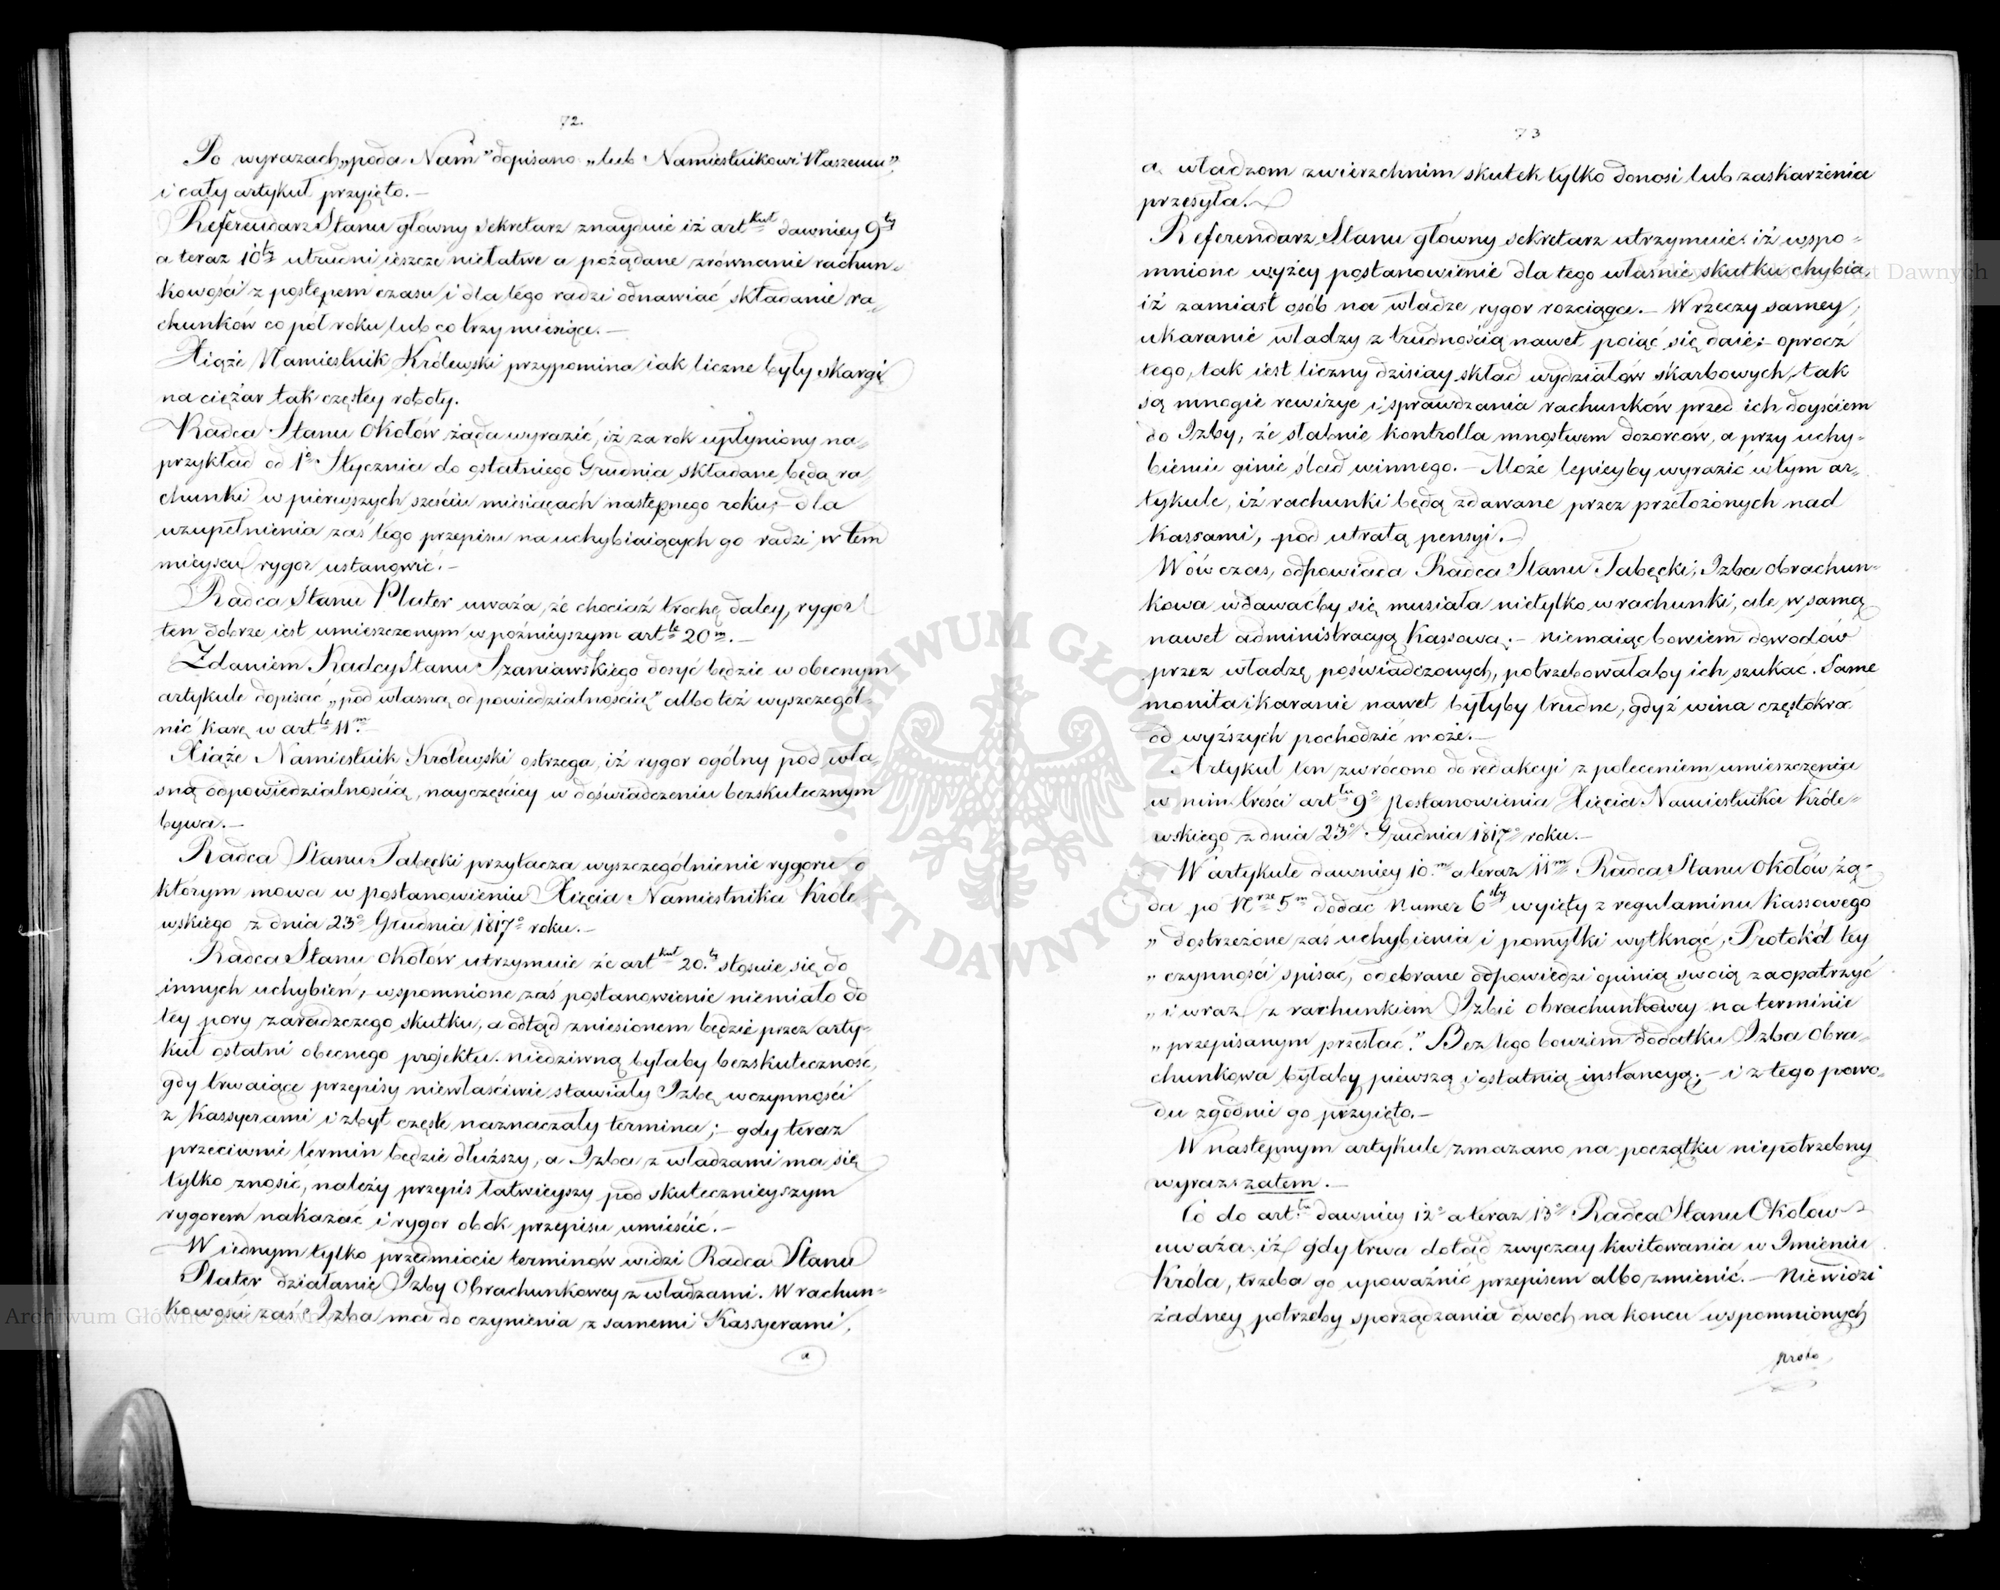 72.
Po wyrazach „poda Nam” dopisano „lub Namiestnikowi Naszemu”,
i cały artykuł przyięto.—
Referendarz Stanu główny sekretarz znayduie iż artkuł dawniey 9ty
a teraz 10ty utrudni ieszcze niełatwe a pożądane zrównanie rachun-
kowości z postępem czasu i dla tego radzi odnawiać składanie ra-
chunków co pół roku lub co trzy miesiące.—
Xiąże Namiestnik Królewski przypomina iak liczne były skargi
na ciężar tak częstey roboty.
Radca Stanu Okołów żąda wyrazić, iż za rok upłyniony na-
przykład od 1o Stycznia do ostatniego Grudnia składane będą ra-
chunki w pierwszych sześciu miesiącach następnego roku;— dla
uzupełnienia zaś tego przepisu na uchybiaiących go radzi w tem
mieyscu rygor ustanowić.—
Radca Stanu Plater uważa, że chociaż trochę daley, rygor
ten dobrze iest umieszczonym w poźnieyszym artle 20m.—
Zdaniem Radcy Stanu Szaniawskiego dosyć będzie w obecnym
artykule dopisać „pod własną odpowiedzialnością” albo też wyszczegól-
nić karę w artle 11m.—
Xiąże Namiestnik Królewski ostrzega, iż rygor ogólny pod wła
sną odpowiedzialnością, nayczęściey w doświadczeniu bezskutecznym
bywa.—
Radca Stanu Tabęcki przytacza wyszczególnienie rygoru o
którym mowa w postanowieniu Xięcia Namiestnika Króle
wskiego z dnia 23o Grudnia 1817o roku.—
Radca Stanu Okołów utrzymuie że artkuł 20ty stosuie się do
innych uchybień, wspomnione zaś postanowienie niemiało do
tey pory zaradczego skutku, a odtąd zniesionem będzie przez arty-
kuł ostatni obecnego projektu. niedziwną byłaby bezskuteczność,
gdy trwaiące przepisy niewłaściwie stawiały Izbę w czynności
z Kassyerami i zbyt częste naznaczały termina;— gdy teraz
przeciwnie termin będzie dłuższy, a Izba z władzami ma się
tylko znosić, należy przepis łatwieyszy pod skutecznieyszym
rygorem nakazać i rygor obok przepisu umieścić.—
W iednym tylko przedmiocie terminów widzi Radca Stanu
Plater działanie Izby Obrachunkowey z władzami. W rachun-
kowości zaś Izba ma do czynienia z samemi Kassyerami,
a
73
a władzom zwierzchnim skutek tylko donosi lub zaskarżenia
przesyła.
Referendarz Stanu główny sekretarz utrzymuie iż wspo-
mnione wyżey postanowienie dla tego właśnie skutku chybia,
iż zamiast osób na władze rygor rozciąga.— W rzeczy samey,
ukaranie władzy z trudnością nawet poiąć się daie;— oprócz
tego, tak iest liczny dzisiay skład wydziałów skarbowych, tak
są mnogie rewizye i sprawdzania rachunków przed ich doyściem
do Izby, że słabnie kontrolla mnóstwem dozorców, a przy uchy-
bieniu ginie ślad winnego.— Może lepieyby wyrazić w tym ar-
tykule, iż rachunki będą zdawane przez przełożonych nad
Kassami, pod utratą pensyi.
Wówczas, odpowiada Radca Stanu Tabęcki, Izba obrachun-
kowa wdawaćby się musiała nietylko w rachunki, ale w samą
nawet administracyą Kassową;— niemaiąc bowiem dowodów
przez władzę poświadczonych, potrzebowałaby ich szukać. Same
monita i karanie nawet byłyby trudne, gdyż wina częstokroć
od wyższych pochodzić może.—
Artykuł ten zwrócono do redakcyi z poleceniem umieszczenia
w nim treści artłu 9o postanowienia Xięcia Namiestnika Króle-
wskiego z dnia 23o Grudnia 1817o roku.—
W artykule dawniey 10m a teraz 11m Radca Stanu Okołów żą-
da po Nrze 5m dodać Numer 6sty wyięty z regulaminu Kassowego
„dostrzeżone zaś uchybienia i pomyłki wytknąć, Protokół tey
„czynności spisać, odebrane odpowiedzi opinią swoią zaopatrzyć
„i wraz z rachunkiem Izbie obrachunkowey na terminie
„przepisanym przesłać.” Bez tego bowiem dodatku Izba Obra-
chunkowa byłaby pierwszą i ostatnią instancyą;— i z tego powo-
du zgodnie go przyięto.—
W następnym artykule zmazano na początku niepotrzebny
wyraz: zatem.—
Co do artłu dawniey 12o a teraz 13o Radca Stanu Okołów
uważa, iż gdy trwa dotąd zwyczay kwitowania w Imieniu
Króla, trzeba go upoważnić przepisem albo zmienić.— Niewidzi
żadney potrzeby sporządzania dwoch na końcu wspomnionych
proto
ARCHIWUM GŁÓWNE AKT DAWNYCH
Archiwum Główne Akt Dawnych
Akt Dawnych